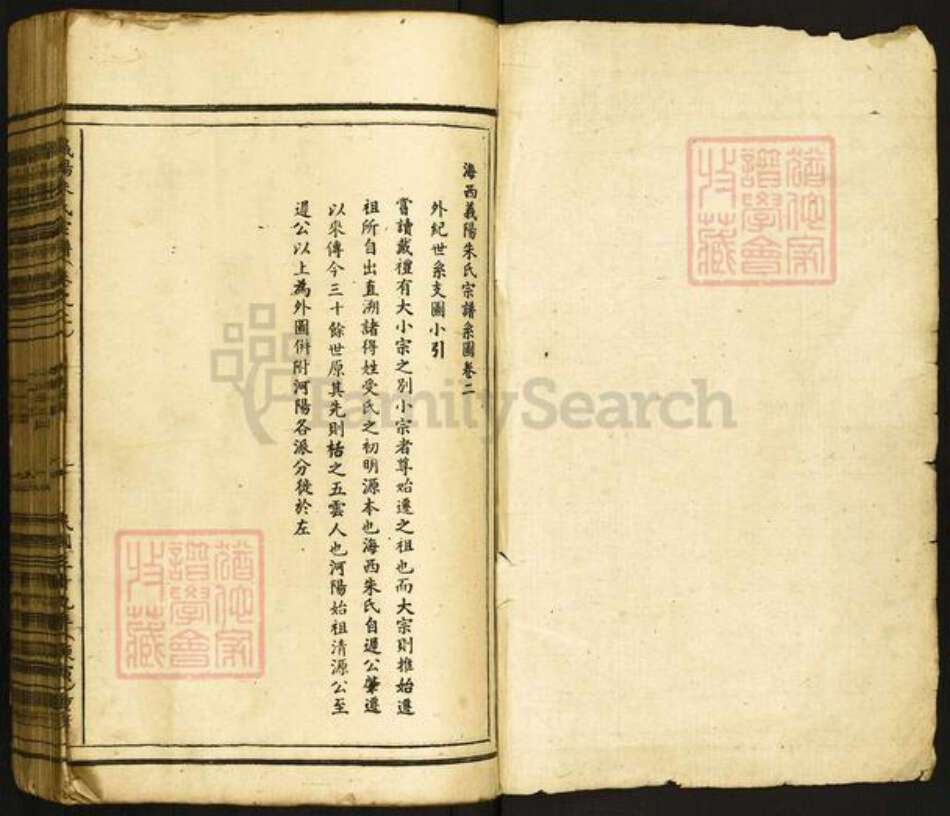 海西義陽朱氏宗譜系圖卷二
外紀世系支圖小引
嘗讀戴禮有大小宗之別小宗者尊始遷之祖也而大宗則推始遷
祖所自出直溯諸得姓受氏之初明源本也海西朱氏自遲公肇遷
以來傳今三十餘世原其先則括之五雲人也河陽始祖清源公至
遲公以上為外圖併附河陽各派分徙於左
譜學會
收藏
譜學會
收藏
FamilySearch